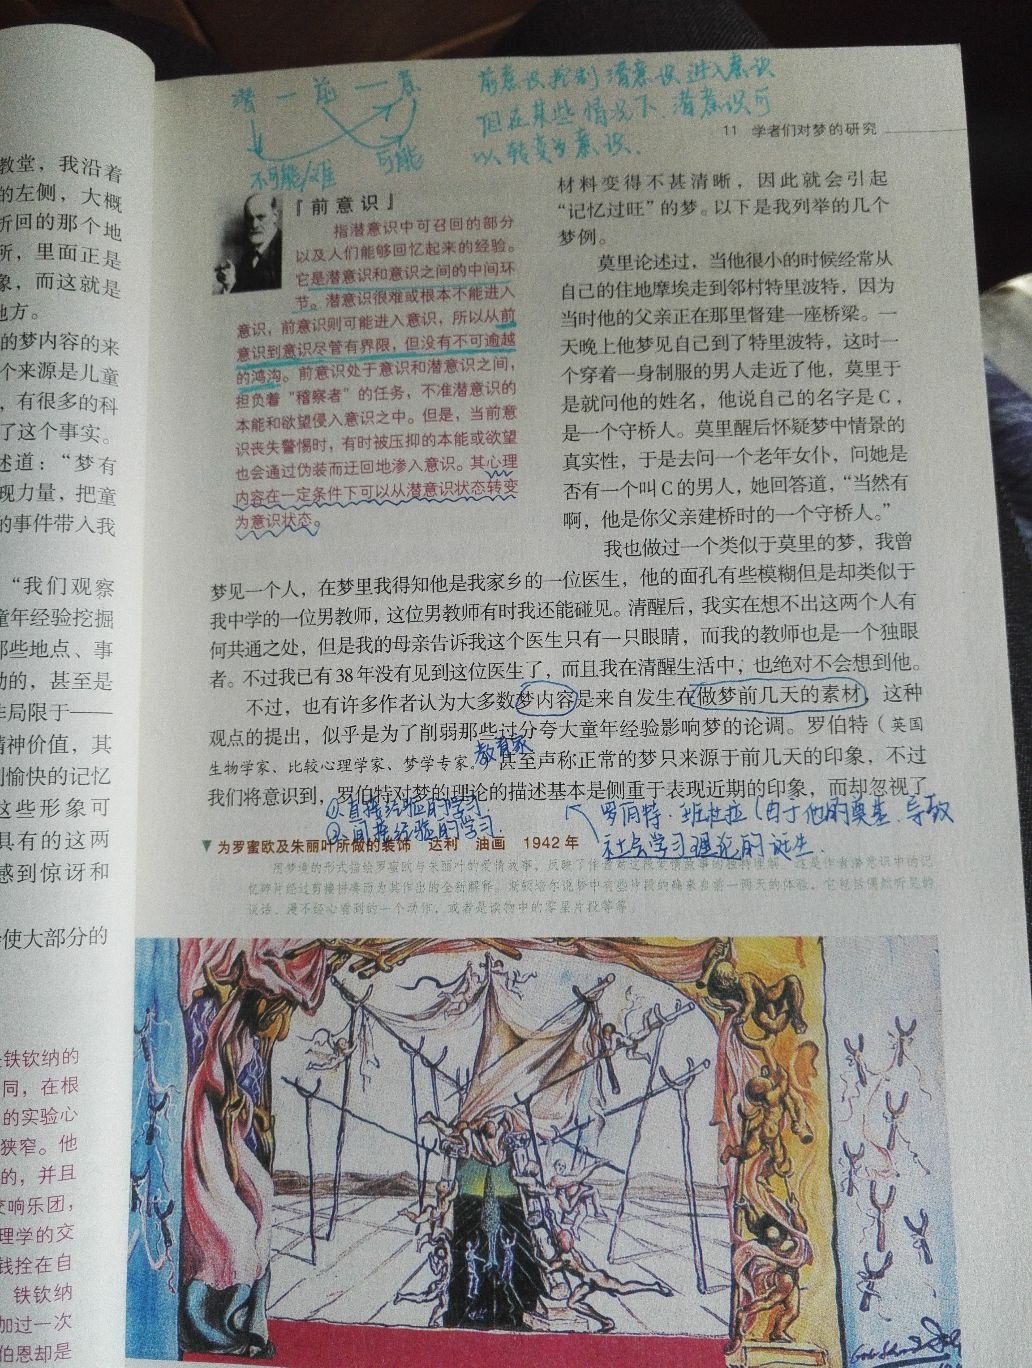 潜一前一意
不可能/难
可能
前意识控制潜意识进入意识
但在某些情况下，潜意识可
以转变为意识．
11 学者们对梦的研究
教堂，我沿着
的左侧，大概
折回的那个地
所，里面正是
象，而这就是
地方。
的梦内容的来
个来源是儿童
，有很多的科
了这个事实。
述道：“梦有
现力量，把童
的事件带入我
“我们观察
童年经验挖掘
那些地点、事
动的，甚至是
非局限于——
精神价值，其
到愉快的记忆
这些形象可
具有的这两
感到惊讶和
使大部分的
铁钦纳的
同，在根
的实验心
狭窄。他
的，并且
交响乐团，
理学的交
钱拴在自
铁钦纳
加过一次
伯恩却是
『前意识』
指潜意识中可召回的部分
以及人们能够回忆起来的经验。
它是潜意识和意识之间的中间环
节。潜意识很难或根本不能进入
意识，前意识则可能进入意识，所以从前
意识到意识尽管有界限，但没有不可逾越
的鸿沟。前意识处于意识和潜意识之间，
担负着“稽察者”的任务，不准潜意识的
本能和欲望侵入意识之中。但是，当前意
识丧失警惕时，有时被压抑的本能或欲望
也会通过伪装而迂回地渗入意识。其心理
内容在一定条件下可以从潜意识状态转变
为意识状态。
材料变得不甚清晰，因此就会引起
“记忆过旺”的梦。以下是我列举的几个
梦例。
莫里论述过，当他很小的时候经常从
自己的住地摩埃走到邻村特里波特，因为
当时他的父亲正在那里督建一座桥梁。一
天晚上他梦见自己到了特里波特，这时一
个穿着一身制服的男人走近了他，莫里于
是就问他的姓名，他说自己的名字是C，
是一个守桥人。莫里醒后怀疑梦中情景的
真实性，于是去问一个老年女仆，问她是
否有一个叫C的男人，她回答道，“当然有
啊，他是你父亲建桥时的一个守桥人。”
我也做过一个类似于莫里的梦，我曾
梦见一个人，在梦里我得知他是我家乡的一位医生，他的面孔有些模糊但是却类似于
我中学的一位男教师，这位男教师有时我还能碰见。清醒后，我实在想不出这两个人有
何共通之处，但是我的母亲告诉我这个医生只有一只眼睛，而我的教师也是一个独眼
者。不过我已有38年没有见到这位医生了，而且我在清醒生活中，也绝对不会想到他。
不过，也有许多作者认为大多数梦内容是来自发生在做梦前几天的素材，这种
观点的提出，似乎是为了削弱那些过分夸大童年经验影响梦的论调。罗伯特（英国
教育家
生物学家、比较心理学家、梦学专家。）甚至声称正常的梦只来源于前几天的印象，不过
我们将意识到，罗伯特对梦的理论的描述基本是侧重于表现近期的印象，而却忽视了
①直接经验的学习
②间接经验的学习．
罗伯特·班杜拉（由于他的奠基．导致
社会学习理论的诞生．
▼为罗蜜欧及朱丽叶所做的装饰 达利 油画 1942年
忆碎片经过剪接拼凑而为其作出的全新解释。斯顿培尔说梦中有些片段的确来自前一两天的体验，它包括偶然听见的
谈话、漫不经心看到的一个动作，或者是读物中的零星片段等等。